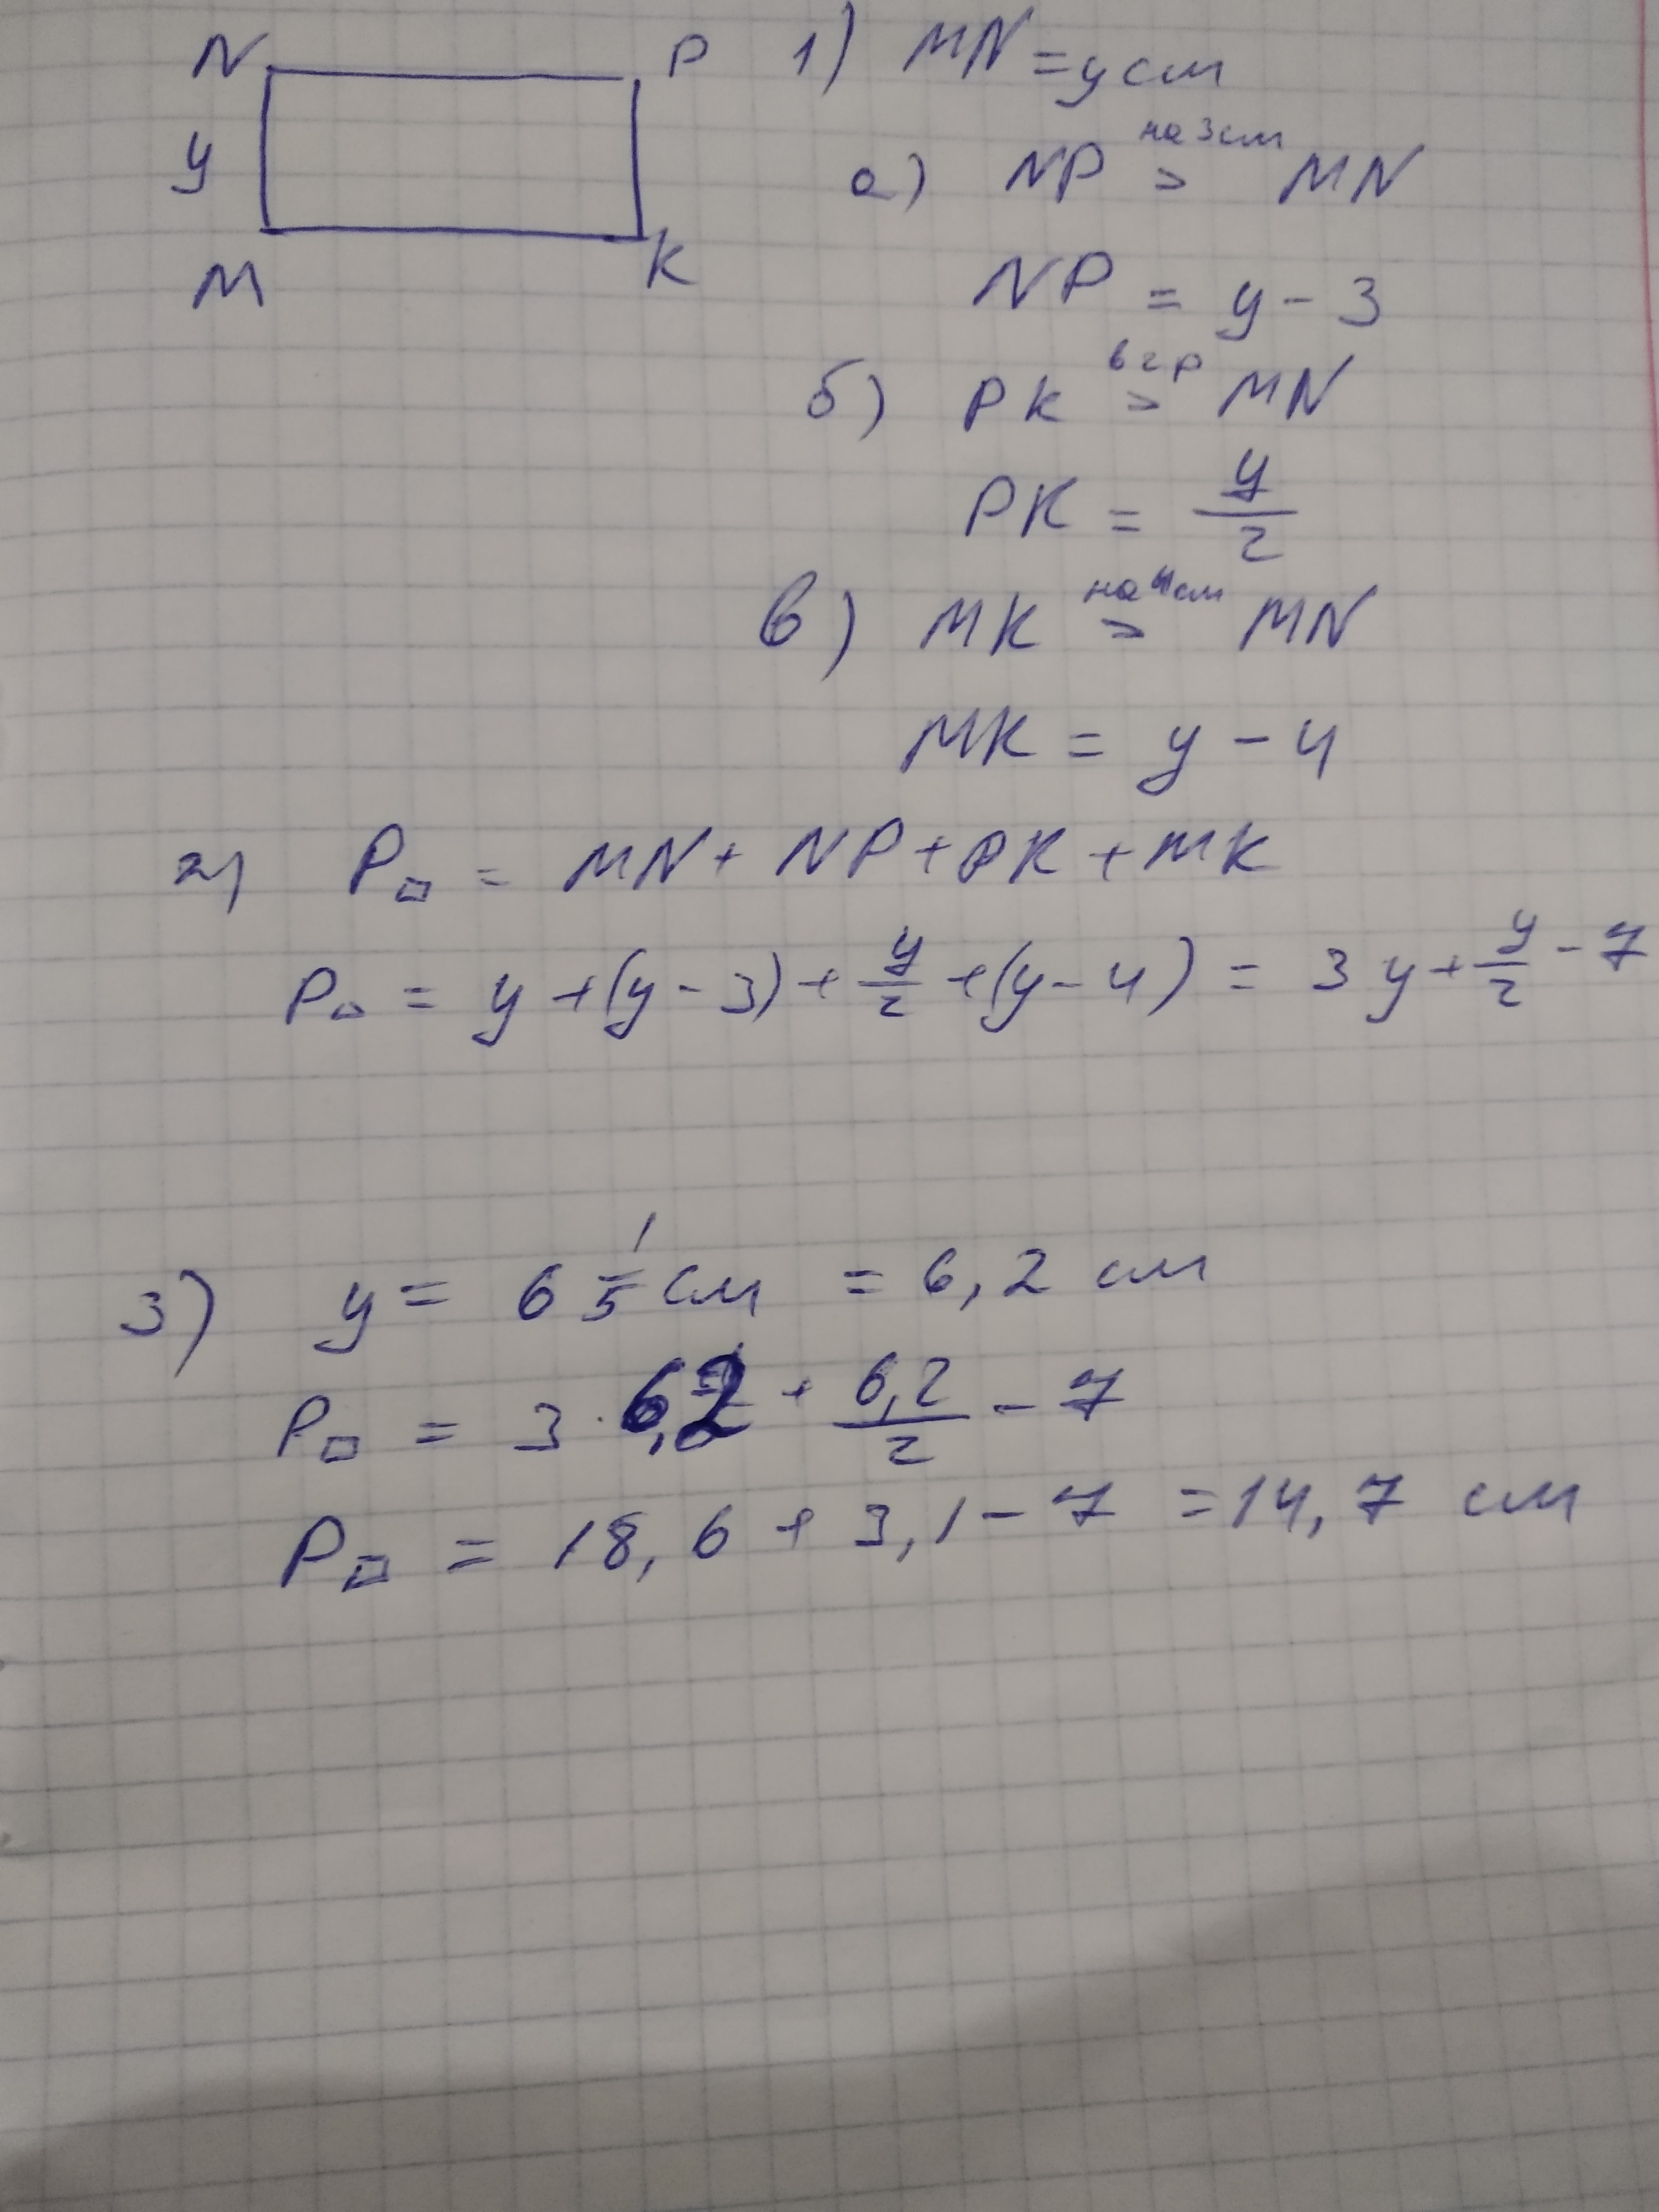 N P
y
M K
1) MN = y см
на 3см
а) NP > MN
NP = y - 3
в 2 р
б) PK > MN
PK = y/2
на 4см
в) MK > MN
MK = y - 4
2) P▱ = MN + NP + PK + MK
P▱ = y + (y - 3) + y/2 + (y - 4) = 3y + y/2 - 7
3) y = 6 1/5 см = 6,2 см
P▱ = 3 · 6,2 + 6,2/2 - 7
P▱ = 18,6 + 3,1 - 7 = 14,7 см